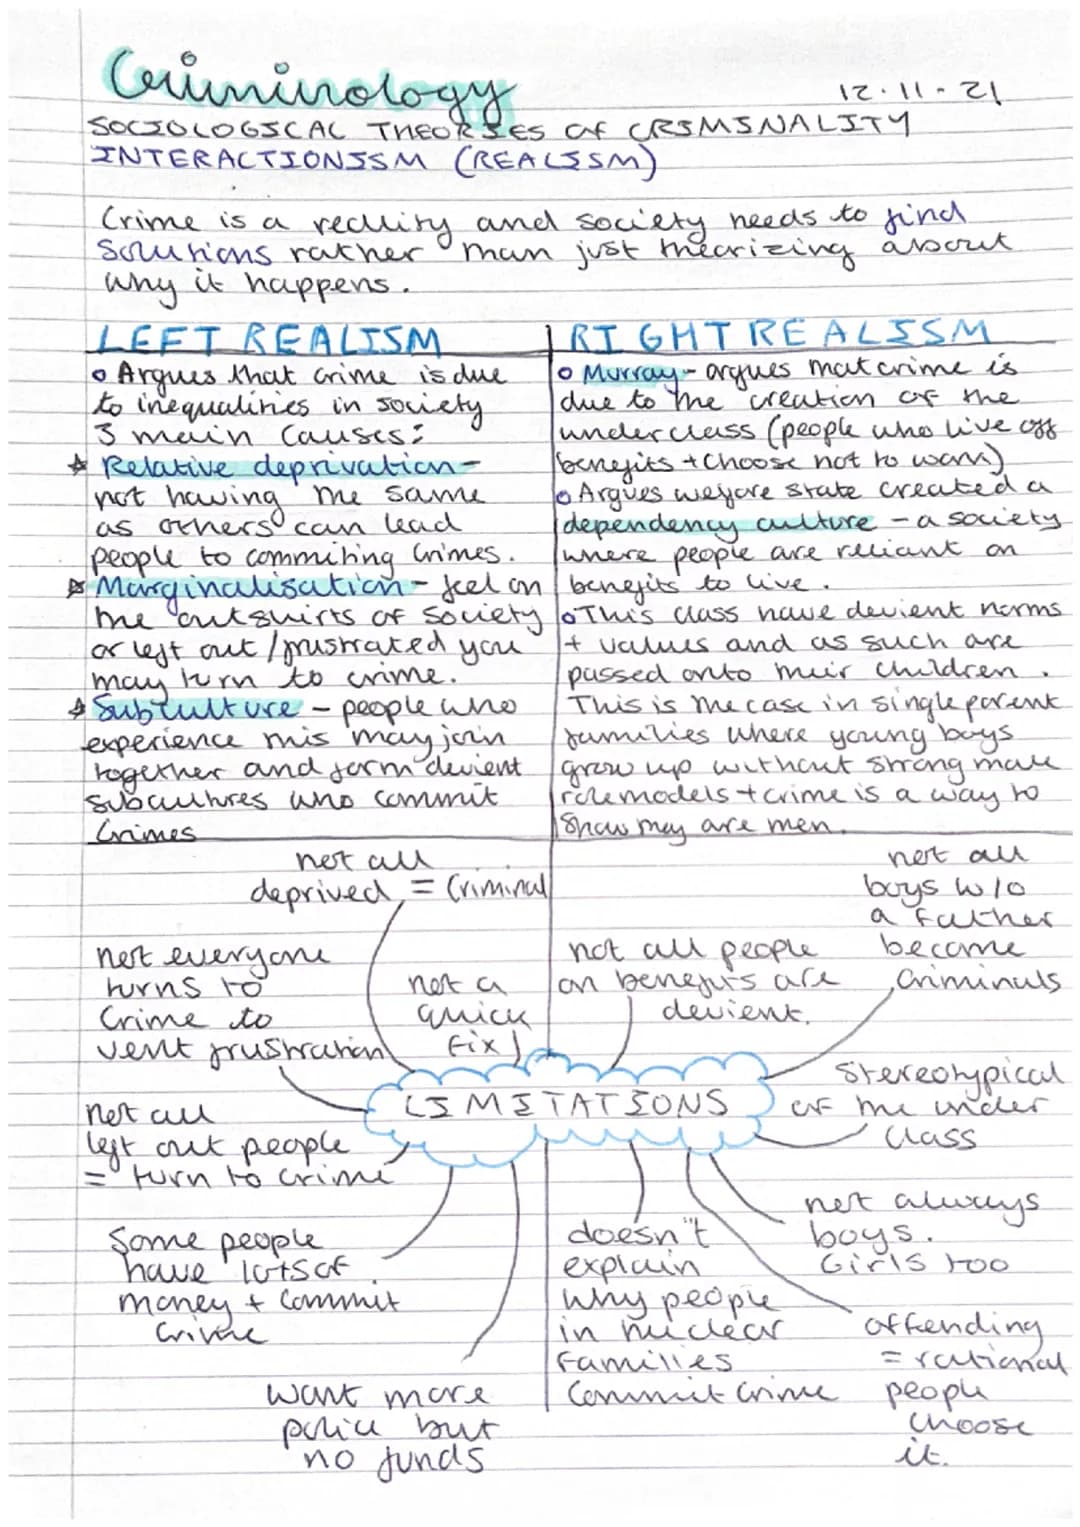 Criminology
12.11-21
SOCIOLOGICAL THEORIES OF CRIMINALITY
INTERACTIONISM (REALISM)
Crime is a reality and society needs to find
solutions rather than just thearizing about
why it happens.
LEFT REALISM
o Argues that crime is due
to inequalities in society
3 main causes:
☆ Relative deprivation-
not having the same
as others can lead
people to commiting crimes.
☆ Marginalisation - feel on
the outskirts of society
or left out/frustrated you
may turn to crime.
☆ Subculture - people who
experience this may join
together and form devient
subcultures who commit
crimes
RIGHT REALISM
o Murray - argues that crime is
due to the creation of the
underclass (people who live off
benefits + choose not to work)
o Argues welfare state created a
dependency culture - a society
where people are reliant on
benefits to live.
o This class have devient norms
+ values and as such are
passed onto their children.
This is the case in single parent
families where young boys
grow up without strong male
role models + crime is a way to
show they are men.
not all
deprived = criminal
not everyone
turns to
crime to
vent frustration
not a
quick
fix
not all people
on benefits are
devient.
not all
boys w/o
a father
become
criminals
LIMITATIONS
Stereotypical
of the under
class
not all
left out people
= turn to crime
Some people
have lots of
money + commit
crime
want more
police but
no funds
doesn't
explain
why people
in nuclear
families
commit crime
not always
boys.
Girls too
offending
= rational
people
choose
it.